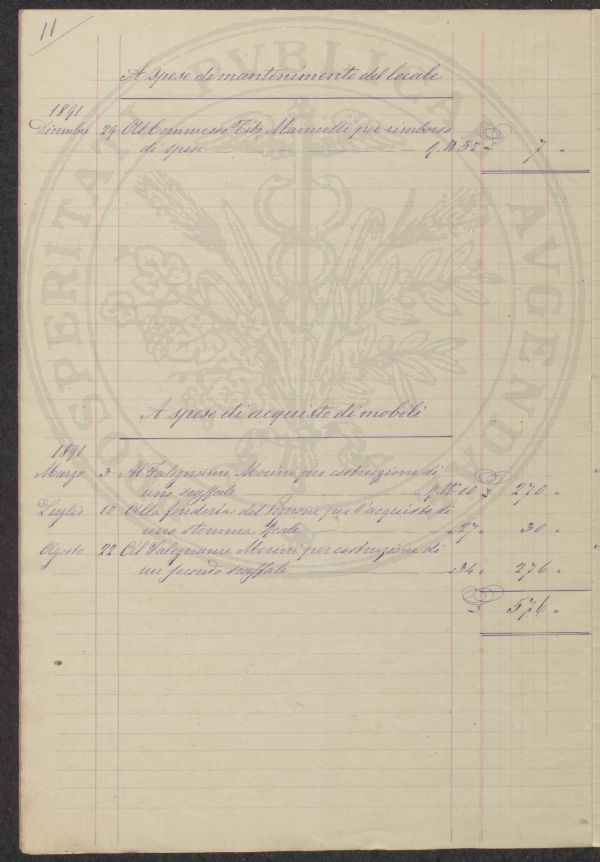 11
A spese di mantenimento del locale
1891
Dicembre 29 Al Commesso Tito Marinelli per rimborso
di spese q. N. 52 £ 7 "
A spese di acquisto di mobili
1891
Marzo 3 Al Falegname Morini per costruzione di
uno scaffale q. N. 10 £ 270 "
Luglio 10 Alla fonderia del Pignone per l'acquisto di
uno stemma Reale " 27 " 30 "
Agosto 22 Al Falegname Morini per costruzione di
un secondo scaffale " 34 " 276 "
£ 576 "
PROSPERITATI PVBLICAE AVGENDAE